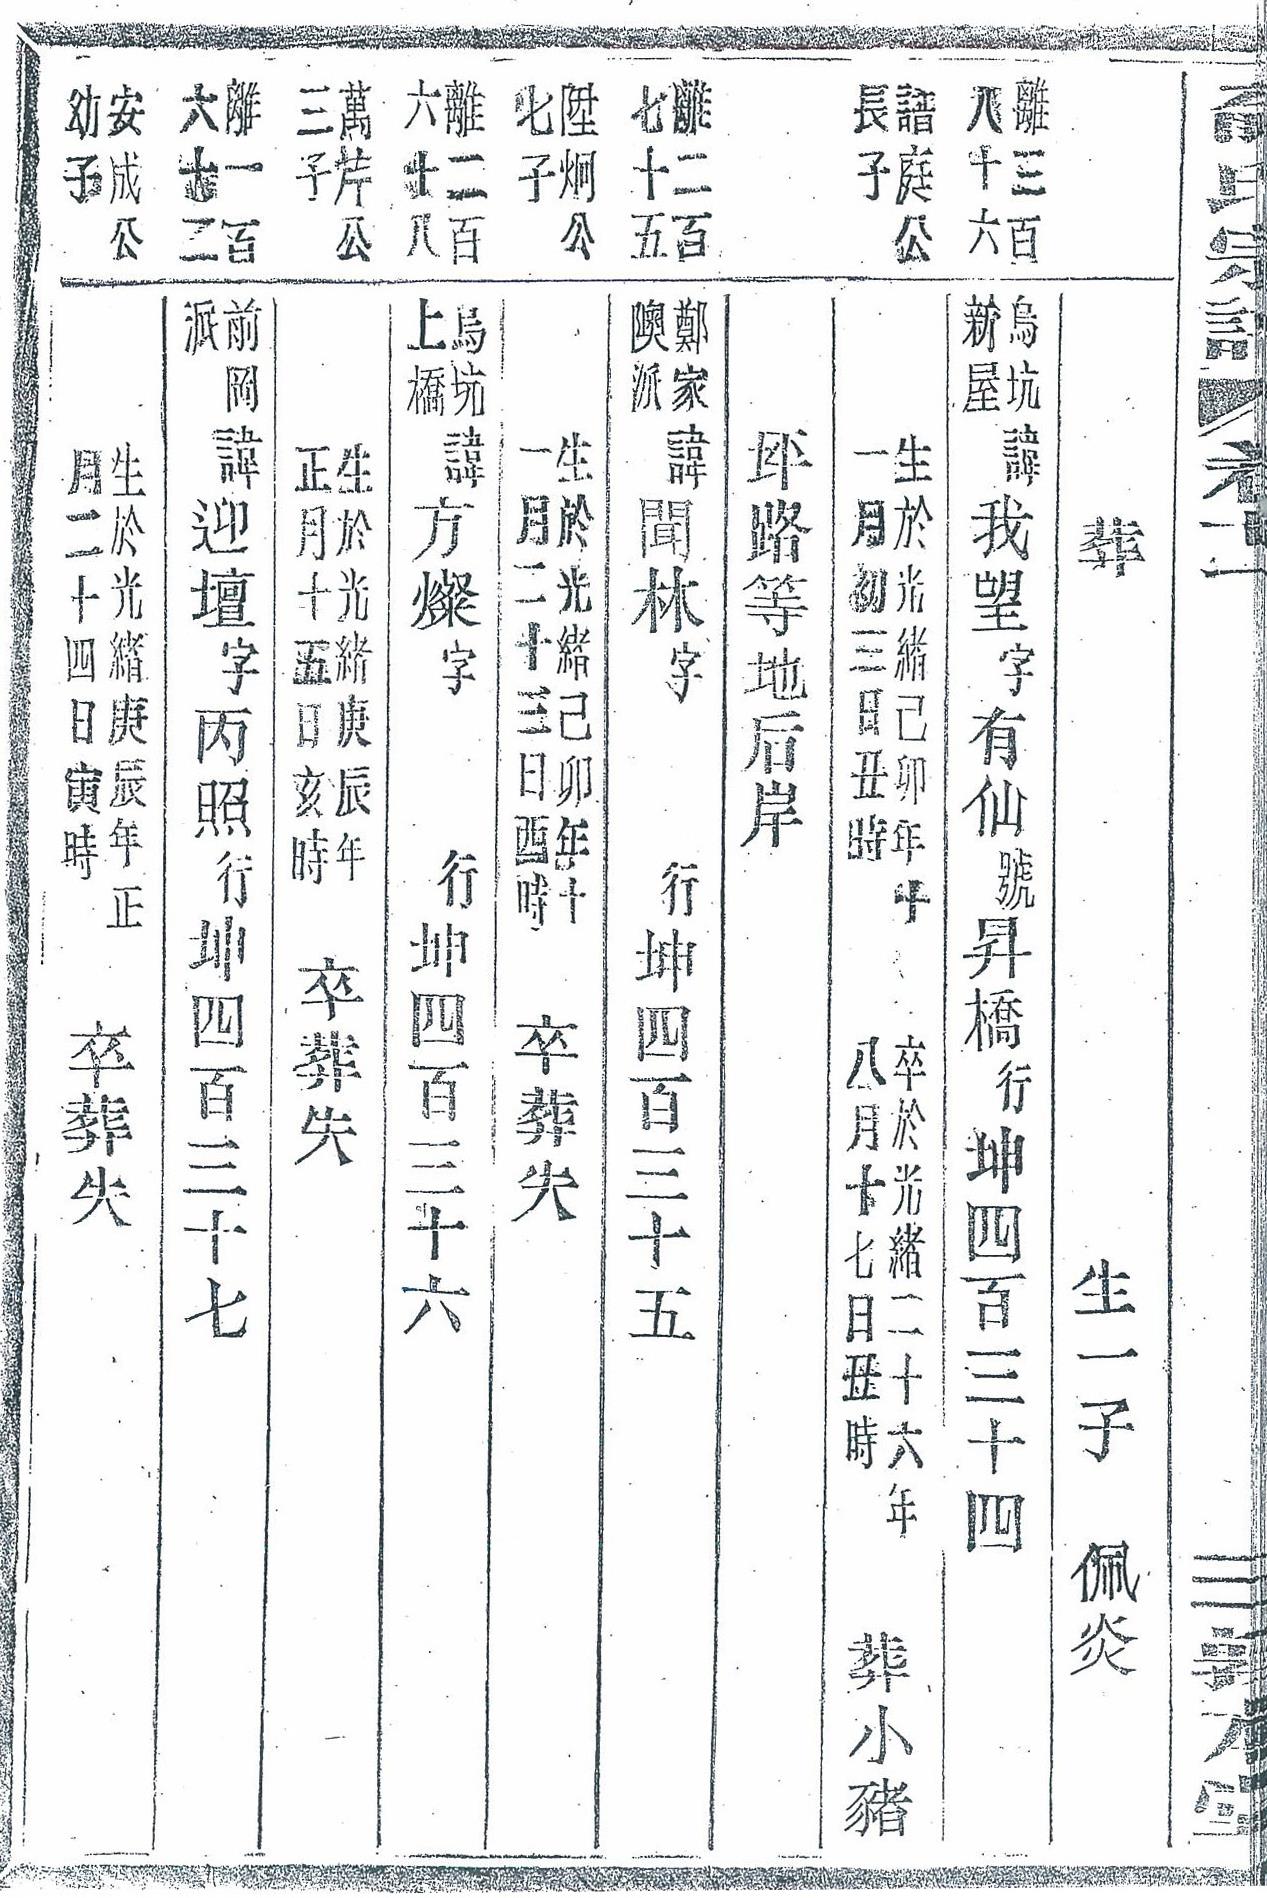 氏宗譜
卷十二
三
敦本堂
葬
生一子
佩炎
離三百
八十六
烏坑
新屋
諱我望字有仙號昇橋行坤四百三十四
譜庭公
長子
生於光緒己卯年十
一月初三日丑時
卒於光緒二十六年
八月十七日丑時
葬小豬
坏路等地后岸
離二百
七十五
鄭家
隩派
諱聞林字
行坤四百三十五
陞炯公
七子
生於光緒己卯年十
一月二十三日酉時
卒葬失
離二百
六十八
烏坑
上橋
諱方燦字
行坤四百三十六
萬芹公
三子
生於光緒庚辰年
正月十五日亥時
卒葬失
離一百
六十二
前岡
派
諱迎壇字丙照行坤四百三十七
安成公
幼子
生於光緒庚辰年正
月二十四日寅時
卒葬失